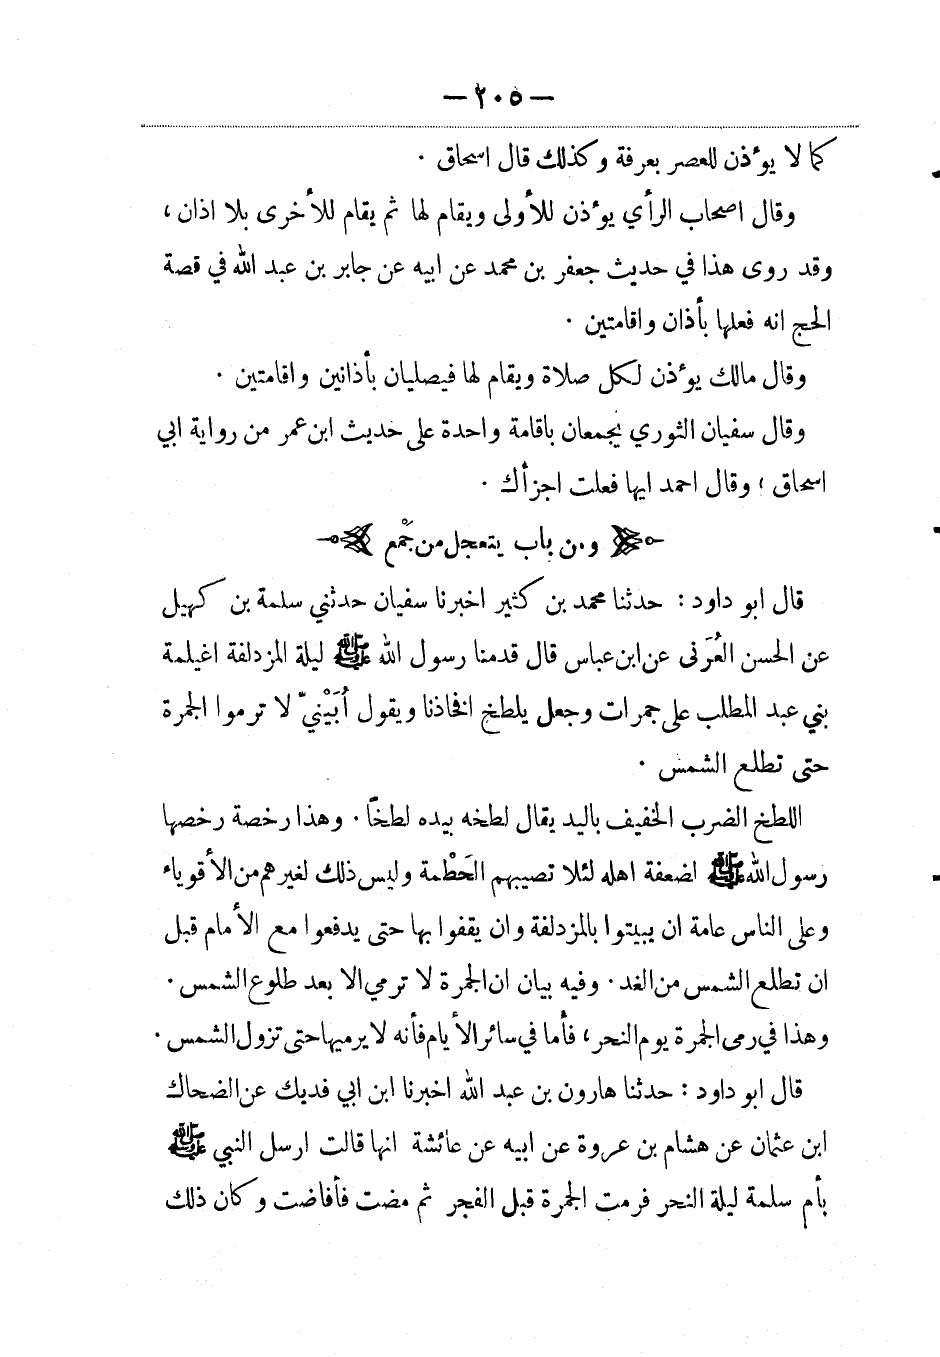 — ٢٠٥ —
كما لا يوءذن للعصر بعرفة وكذلك قال اسحاق ٠
وقال اصحاب الرأي يوءذن للأولى ويقام لها ثم يقام للأخرى بلا اذان ،
وقد روى هذا في حديث جعفر بن محمد عن ابيه عن جابر بن عبد الله في قصة
الحج انه فعلها بأذان واقامتين ٠
وقال مالك يوءذن لكل صلاة ويقام لها فيصليان بأذانين واقامتين ٠
وقال سفيان الثوري يجمعان باقامة واحدة على حديث ابن عمر من رواية ابي
اسحاق ؛ وقال احمد ايها فعلت اجزأك ٠
ومن باب يتعجل من جَمْع
قال ابو داود : حدثنا محمد بن كثير اخبرنا سفيان حدثني سلمة بن كهيل
عن الحسن العُرَنى عن ابن عباس قال قدمنا رسول الله ﷺ ليلة المزدلفة اغيلمة
بني عبد المطلب على جمرات وجعل يلطخ افخاذنا ويقول أُبَيْنيّ لا ترموا الجمرة
حتى تطلع الشمس ٠
اللطخ الضرب الخفيف باليد يقال لطخه بيده لطخًا ٠ وهذا رخصة رخصها
رسول الله ﷺ لضعفة اهله لئلا تصيبهم الحَطْمة وليس ذلك لغيرهم من الأقوياء
وعلى الناس عامة ان يبيتوا بالمزدلفة وان يقفوا بها حتى يدفعوا مع الأمام قبل
ان تطلع الشمس من الغد ٠ وفيه بيان ان الجمرة لا ترمي الا بعد طلوع الشمس ٠
وهذا في رمى الجمرة يوم النحر ، فأما في سائر الأيام فأنه لا يرميها حتى تزول الشمس ٠
قال ابو داود : حدثنا هارون بن عبد الله اخبرنا ابن ابي فديك عن الضحاك
ابن عثمان عن هشام بن عروة عن ابيه عن عائشة انها قالت ارسل النبي ﷺ
بأم سلمة ليلة النحر فرمت الجمرة قبل الفجر ثم مضت فأفاضت وكان ذلك